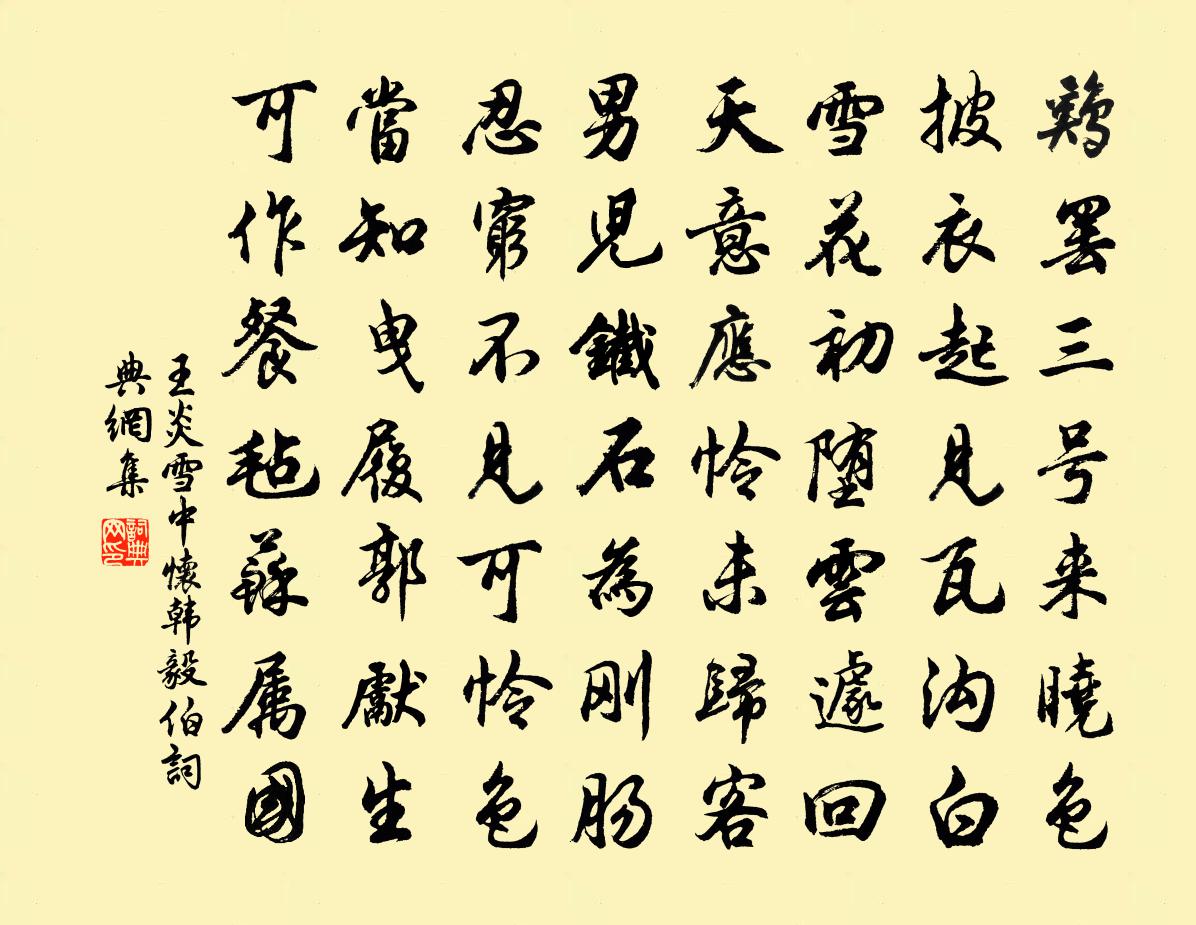 鶏罢三号来曉色
披衣起見瓦沟白
雪花初堕雲遽回
天意應怜未歸客
男児鐵石為刚肠
忍窮不見可怜色
當知曳履郭獻生
可作餐毡蘇属國
王炎雪中懷韩毅伯詞
典網集
詞典网印